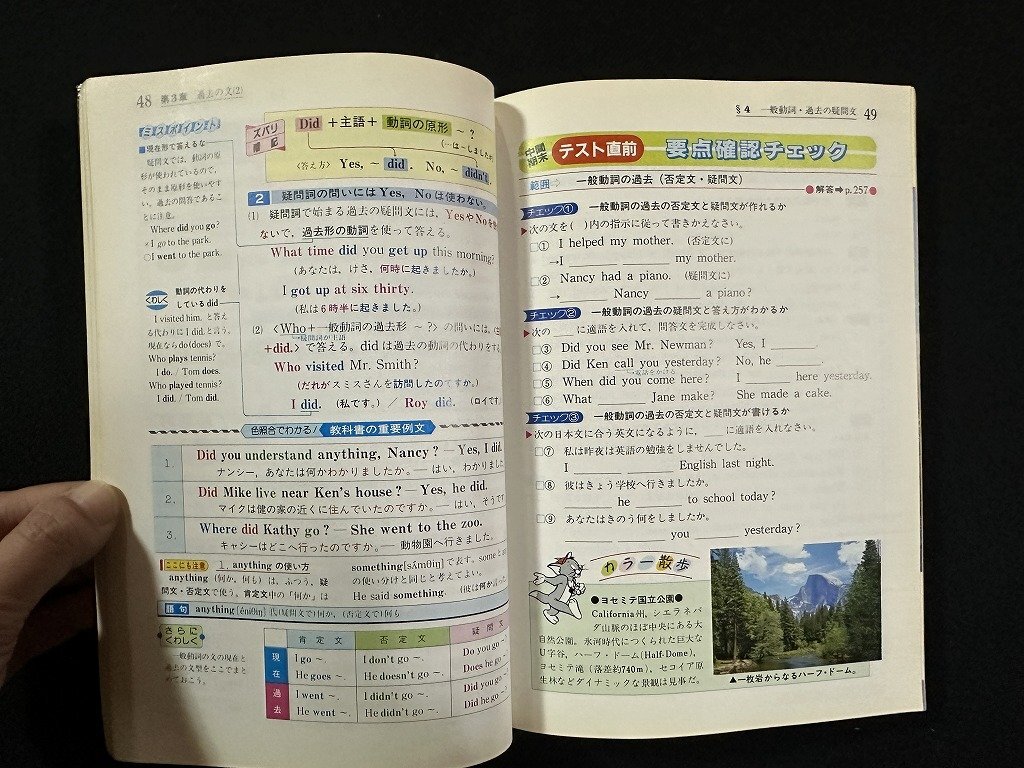 48 第3章 過去の文(2)
ミスポイント
■現在形で答えるな
疑問文では，動詞の原
形が使われているので，
そのまま原形を使いやす
い。過去の問答であるこ
とに注意。
Where did you go?
×I go to the park.
○I went to the park.
くわしく
動詞の代わりを
しているdid
I visited him. と答え
る代わりにI did.と言う。
現在ならdo(does)で。
Who plays tennis?
I do. / Tom does.
Who played tennis?
I did. / Tom did.
ズバリ
暗記
Did ＋主語＋ 動詞の原形 ～？
(…は～しましたか
〈答え方〉 Yes, ～ did. No, ～ didn't.
2 疑問詞の問いにはYes, Noは使わない。
(1) 疑問詞で始まる過去の疑問文には，YesやNoを使
ないで，過去形の動詞を使って答える。
What time did you get up this morning?
(あなたは，けさ，何時に起きましたか。)
I got up at six thirty.
(私は6時半に起きました。)
(2) 〈Who＋一般動詞の過去形 ～?〉の問いには，
疑問詞が主語
＋did.〉で答える。didは過去の動詞の代わりをする
Who visited Mr. Smith?
(だれがスミスさんを訪問したのですか。)
I did. (私です。) / Roy did. (ロイです
色照合でわかる! 教科書の重要例文
1. Did you understand anything, Nancy? ― Yes, I did.
ナンシー，あなたは何かわかりましたか。― はい，わかりました
2. Did Mike live near Ken's house? ― Yes, he did.
マイクは健の家の近くに住んでいたのですか。― はい，そうで
3. Where did Kathy go? ― She went to the zoo.
キャシーはどこへ行ったのですか。― 動物園へ行きました。
ここにも注意 1. anything の使い方
anything (何か，何も) は，ふつう，疑
問文・否定文で使う。肯定文中の「何か」は
something[sʌ́mθiŋ]で表す。someと
の使い分けと同じと考えてよい。
He said something. (彼は何か言っ
語句 anything [éniθiŋ] 代 (疑問文で) 何か，(否定文で) 何も
さらに
くわしく
一般動詞の文の現在と
過去の文型をここでまと
めておこう。
肯定文 否定文 疑問文
現在 I go ～. I don't go ～. Do you go
He goes ～. He doesn't go ～. Does he go
過去 I went ～. I didn't go ～. Did you go
He went ～. He didn't go ～. Did he go
§4 一般動詞・過去の疑問文 49
中間
期末
テスト直前 要点確認チェック
範囲⇨ 一般動詞の過去（否定文・疑問文）
●解答➡p.257●
チェック① 一般動詞の過去の否定文と疑問文が作れるか
▶次の文を( )内の指示に従って書きかえなさい。
□① I helped my mother. (否定文に)
→I ______ ______ my mother.
□② Nancy had a piano. (疑問文に)
→______ Nancy ______ a piano?
チェック② 一般動詞の過去の疑問文と答え方がわかるか
▶次の ___ に適語を入れて，問答文を完成しなさい。
□③ Did you see Mr. Newman? Yes, I ______.
□④ Did Ken call you yesterday? No, he ______.
電話をかける
□⑤ When did you come here? I ______ here yesterday.
□⑥ What ______ Jane make? She made a cake.
チェック③ 一般動詞の過去の否定文と疑問文が書けるか
▶次の日本文に合う英文になるように，___に適語を入れなさい。
□⑦ 私は昨夜は英語の勉強をしませんでした。
I ______ ______ English last night.
□⑧ 彼はきょう学校へ行きましたか。
______ he ______ to school today?
□⑨ あなたはきのう何をしましたか。
______ ______ you ______ yesterday?
カラー散歩
●ヨセミテ国立公園●
California州，シエラネバ
ダ山脈のほぼ中央にある大
自然公園。氷河時代につくられた巨大な
U字谷，ハーフ・ドーム(Half-Dome)，
ヨセミテ滝（落差約740m)，セコイア原
生林などダイナミックな景観は見事だ。
▲一枚岩からなるハーフ・ドーム。